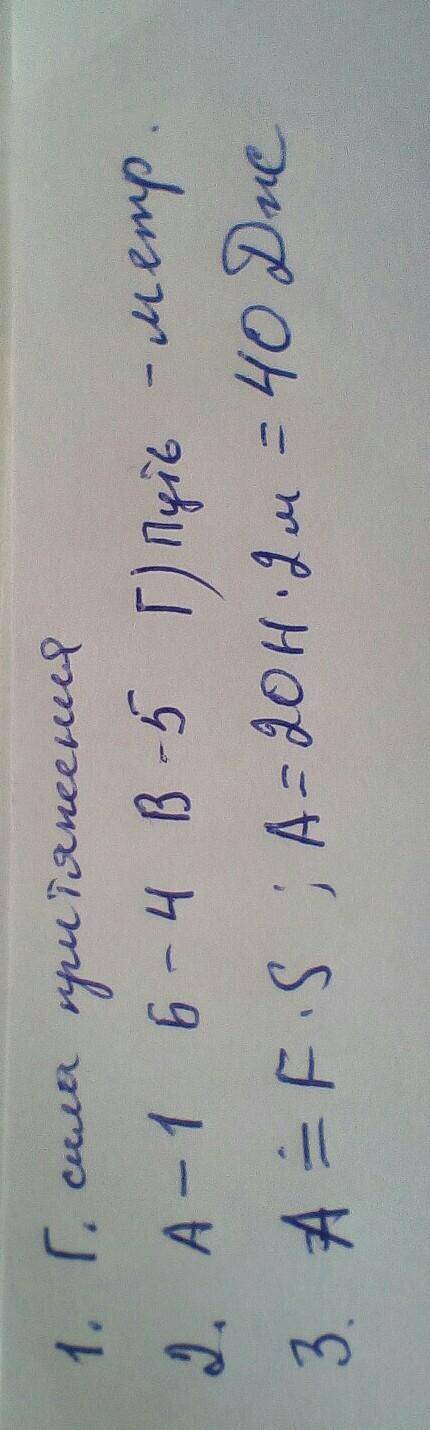 1. Г. сила притяжения
2. А – 1 Б – 4 В – 5 Г) Путь – метр.
3. A = F · S ; A = 20 Н · 2 м = 40 Дж